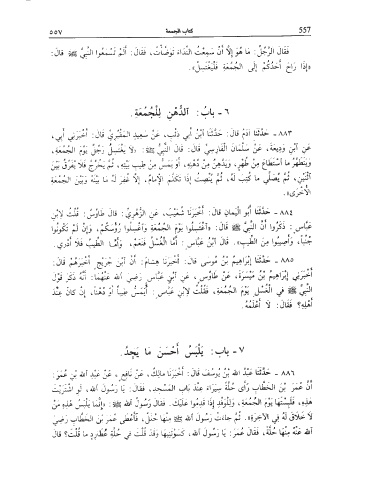 557 كتاب الجمعة ٥٥٧
فَقَالَ الرَّجُلُ: مَا هُوَ إِلاَّ أَنْ سَمِعْتُ النِّدَاءَ تَوَضَّأْتُ، فَقَالَ: أَلَمْ تَسْمَعُوا النَّبِيَّ ﷺ قَالَ:
«إِذَا رَاحَ أَحَدُكُمْ إِلَى الْجُمُعَةِ فَلْيَغْتَسِلْ».
٦ - باب: الدُّهْنِ لِلْجُمُعَةِ.
٨٨٣ - حَدَّثَنَا آدَمُ قَالَ: حَدَّثَنَا ابْنُ أَبِي ذِئْبٍ، عَنْ سَعِيدٍ الْمَقْبُرِيِّ قَالَ: أَخْبَرَنِي أَبِي،
عَنِ ابْنِ وَدِيعَةَ، عَنْ سَلْمَانَ الْفَارِسِيِّ قَالَ: قَالَ النَّبِيُّ ﷺ: «لا يَغْتَسِلُ رَجُلٌ يَوْمَ الْجُمُعَةِ،
وَيَتَطَهَّرُ مَا اسْتَطَاعَ مِنْ طُهْرٍ، وَيَدَّهِنُ مِنْ دُهْنِهِ، أَوْ يَمَسُّ مِنْ طِيبِ بَيْتِهِ، ثُمَّ يَخْرُجُ فَلا يُفَرِّقُ بَيْنَ
اثْنَيْنِ، ثُمَّ يُصَلِّي مَا كُتِبَ لَهُ، ثُمَّ يُنْصِتُ إِذَا تَكَلَّمَ الإِمَامُ، إِلاَّ غُفِرَ لَهُ مَا بَيْنَهُ وَبَيْنَ الْجُمُعَةِ
الأُخْرَى».
٨٨٤ - حَدَّثَنَا أَبُو الْيَمَانِ قَالَ: أَخْبَرَنَا شُعَيْبٌ، عَنِ الزُّهْرِيِّ: قَالَ طَاوُسٌ: قُلْتُ لابْنِ
عَبَّاسٍ: ذَكَرُوا أَنَّ النَّبِيَّ ﷺ قَالَ: «اغْتَسِلُوا يَوْمَ الْجُمُعَةِ وَاغْسِلُوا رُؤُسَكُمْ، وَإِنْ لَمْ تَكُونُوا
جُنُباً، وَأَصِيبُوا مِنَ الطِّيبِ». قَالَ ابْنُ عَبَّاسٍ: أَمَّا الْغُسْلُ فَنَعَمْ، وَأَمَّا الطِّيبُ فَلا أَدْرِي.
٨٨٥ - حَدَّثَنَا إِبْرَاهِيمُ بْنُ مُوسَى قَالَ: أَخْبَرَنَا هِشَامٌ: أَنَّ ابْنَ جُرَيْجٍ أَخْبَرَهُمْ قَالَ:
أَخْبَرَنِي إِبْرَاهِيمُ بْنُ مَيْسَرَةَ، عَنْ طَاوُسٍ، عَنِ ابْنِ عَبَّاسٍ رَضِيَ اللهُ عَنْهُمَا: أَنَّهُ ذَكَرَ قَوْلَ
النَّبِيِّ ﷺ فِي الْغُسْلِ يَوْمَ الْجُمُعَةِ، فَقُلْتُ لابْنِ عَبَّاسٍ: أَيَمَسُّ طِيباً أَوْ دُهْناً، إِنْ كَانَ عِنْدَ
أَهْلِهِ؟ فَقَالَ: لا أَعْلَمُهُ.
٧ - باب: يَلْبَسُ أَحْسَنَ مَا يَجِدُ.
٨٨٦ - حَدَّثَنَا عَبْدُ اللهِ بْنُ يُوسُفَ قَالَ: أَخْبَرَنَا مَالِكٌ، عَنْ نَافِعٍ، عَنْ عَبْدِ اللهِ بْنِ عُمَرَ:
أَنَّ عُمَرَ بْنَ الْخَطَّابِ رَأَى حُلَّةً سِيَرَاءَ عِنْدَ بَابِ الْمَسْجِدِ، فَقَالَ: يَا رَسُولَ اللهِ، لَوِ اشْتَرَيْتَ
هَذِهِ، فَلَبِسْتَهَا يَوْمَ الْجُمُعَةِ، وَلِلْوَفْدِ إِذَا قَدِمُوا عَلَيْكَ. فَقَالَ رَسُولُ اللهِ ﷺ: «إِنَّمَا يَلْبَسُ هَذِهِ مَنْ
لا خَلاقَ لَهُ فِي الآخِرَةِ». ثُمَّ جَاءَتْ رَسُولَ اللهِ ﷺ مِنْهَا حُلَلٌ، فَأَعْطَى عُمَرَ بْنَ الْخَطَّابِ رَضِيَ
اللهُ عَنْهُ مِنْهَا حُلَّةً، فَقَالَ عُمَرُ: يَا رَسُولَ اللهِ، كَسَوْتَنِيهَا وَقَدْ قُلْتَ فِي حُلَّةِ عُطَارِدٍ مَا قُلْتَ؟ قَالَ